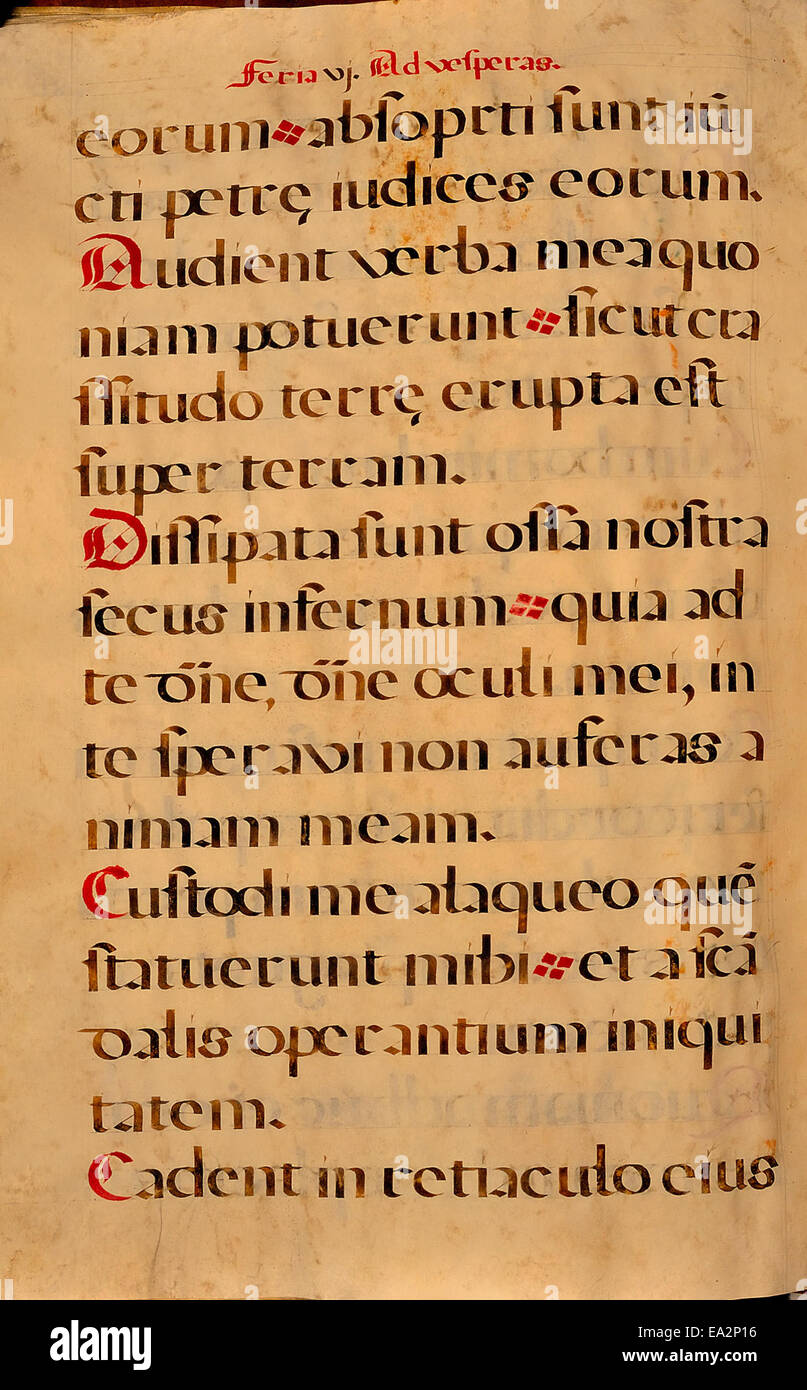 Feria vj. Ad veſperas.
eorum abſoprti ſunt iū
cti petrę iudices eorum.
Audient verba mea quo
niam potuerunt ſicut cra
ſſitudo terrę erupta eſt
ſuper terram.
Diſſipata ſunt oſſa noſtra
ſecus infernum quia ad
te dn̄e, dn̄e oculi mei, in
te ſperavi non auferas a
nimam meam.
Cuſtodi me a laqueo quē
ſtatuerunt mihi et a ſcā
dalis operantium iniqui
tatem.
Cadent in retiaculo eius
alamy
Image ID: EA2P16
www.alamy.com